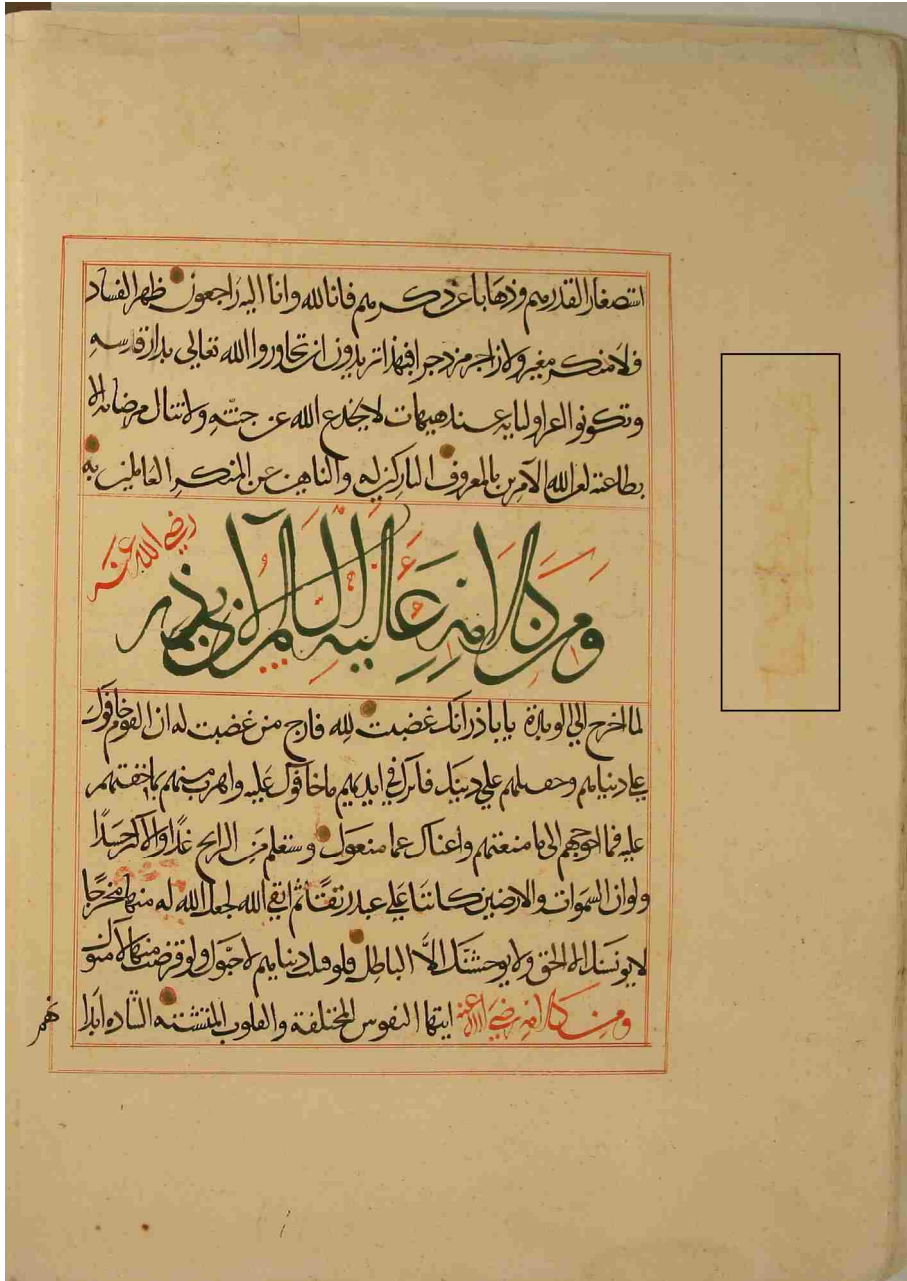 استصغارا لقدرهم وذهابا عن ذكرهم فانا لله وانا اليه راجعون ظهر الفساد
فلا منكر مغير ولا زاجر مزدجر افبهذا تريدون ان تجاوروا الله تعالى بدار قدسه
وتكونوا اعز اوليايه عنده هيهات لا يخدع الله عن جنته ولا تنال مرضاته الا
بطاعته لعن الله الآمرين بالمعروف التاركين له والناهين عن المنكر العاملين به
ومن كلامه عليه السلام لابي ذر رضي الله عنه
لما اخرج الى الربذة يا با ذر انك غضبت لله فارج من غضبت له ان القوم خافوك
على دنياهم وخفتهم على دينك فاترك في ايديهم ما خافوك عليه واهرب منهم بما خفتهم
عليه فما احوجهم الى ما منعتهم واغناك عما منعوك وستعلم من الرابح غدا والاكثر حسدا
ولو ان السموات والارضين كانتا على عبد رتقا ثم اتقى الله لجعل الله له منهما مخرجا
لا يونسنك الا الحق ولا يوحشنك الا الباطل فلو قبلت دنياهم لاحبوك ولو قرضت منها لامنوك
ومن كلامه رضي الله عنه ايتها النفوس المختلفة والقلوب المتشتتة الشاهدة ابدانهم